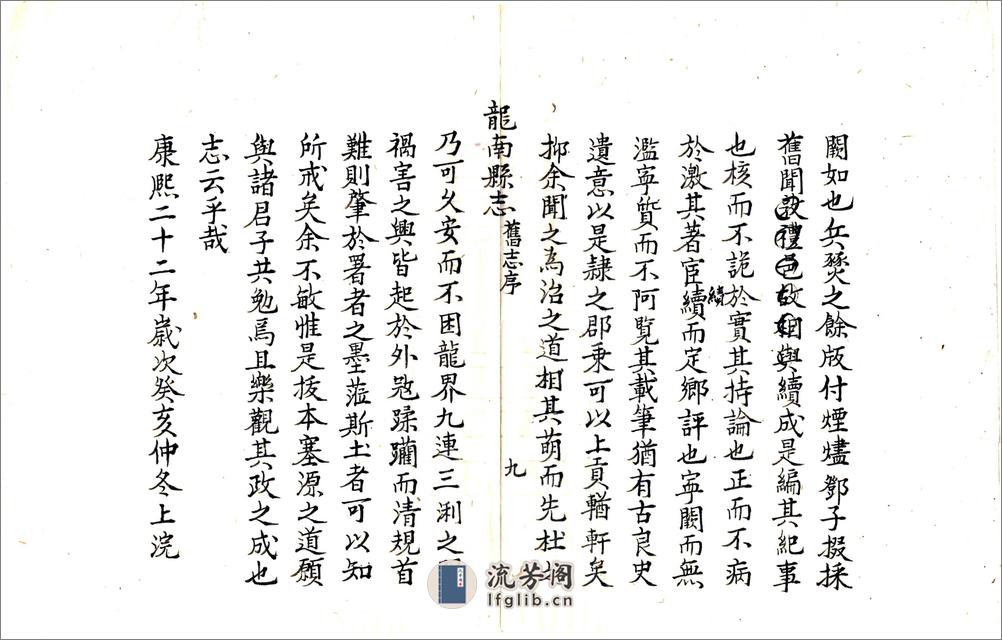 闕如也兵燹之餘版付煙燼鄧子掇採
舊聞敦禮邑故相與續成是編其紀事
也核而不詭於實其持論也正而不病
於激其著宦續而定鄉評也寧闕而無
績
濫寧質而不阿覽其載筆猶有古良史
遺意以是隷之郡乗可以上貢輶軒矣
抑余聞之為治之道相其萌而先杜
龍南縣志
舊志序
九
乃可久安而不困龍界九連三浰之
禍害之興皆起於外寇蹂躪而清規首
難則肇於署者之墨蒞斯土者可以知
所戒矣余不敏惟是拔本塞源之道願
與諸君子共勉焉且樂觀其政之成也
志云乎哉
康熙二十二年歲次癸亥仲冬上浣
流芳阁
lfglib.cn